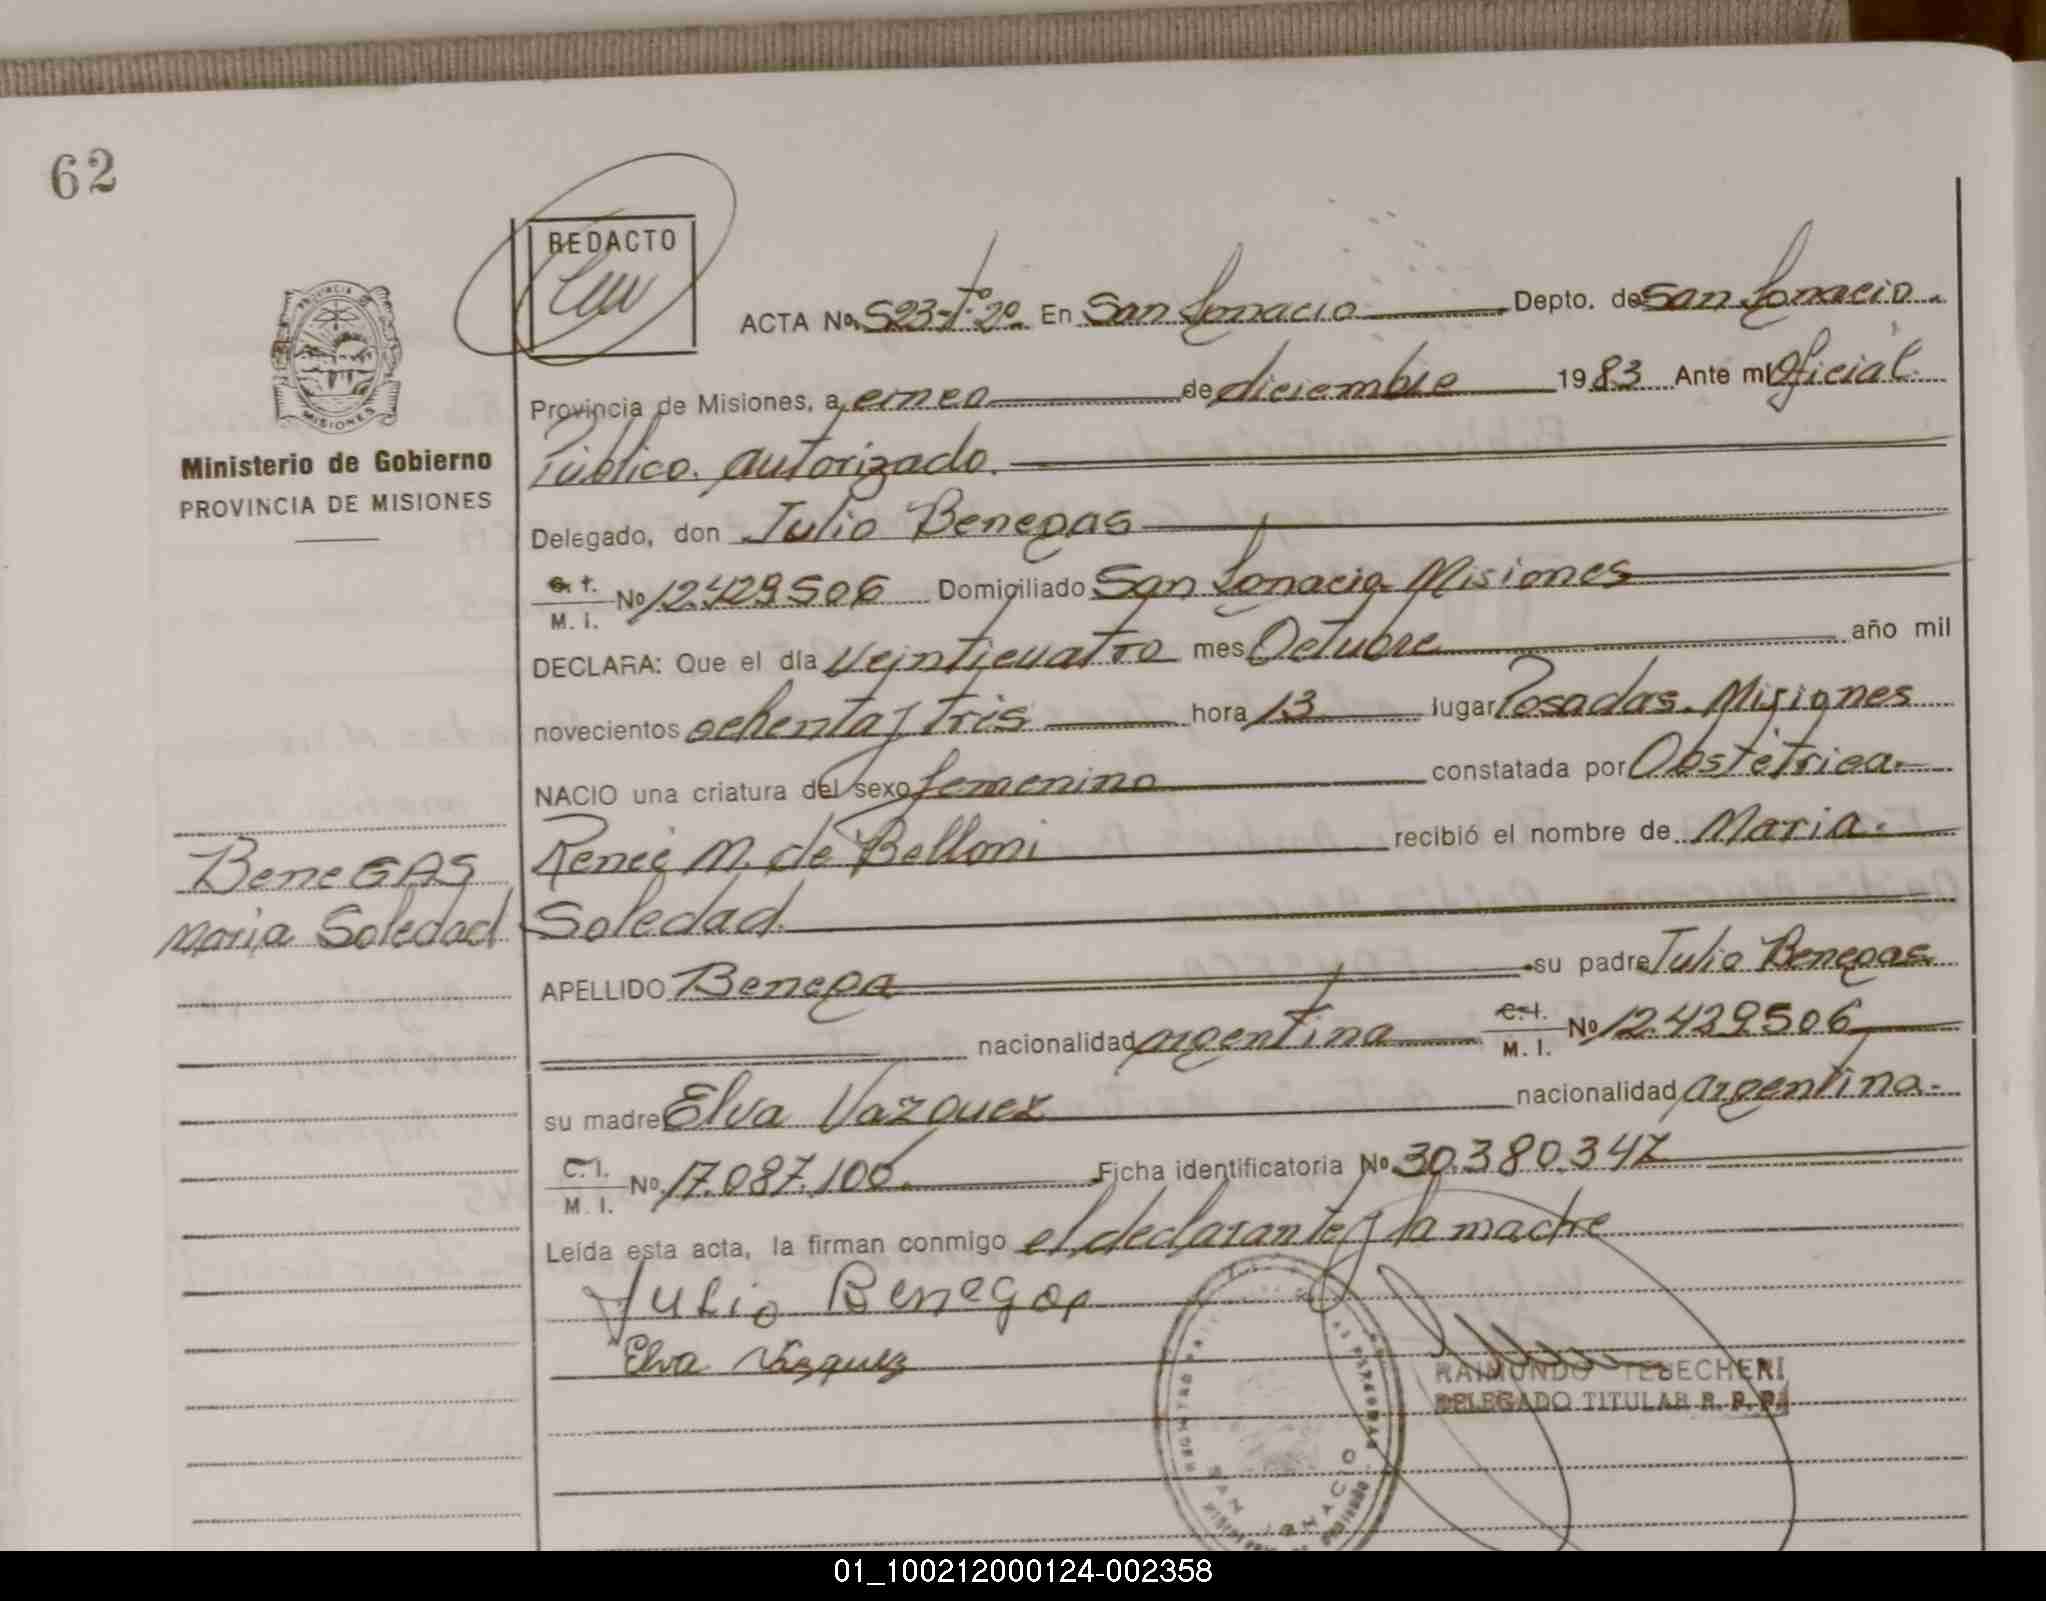 62
REDACTO
PROVINCIA DE
MISIONES
Ministerio de Gobierno
PROVINCIA DE MISIONES
ACTA No 523-Tº2º. En San Ignacio Depto. de San Ignacio.
Provincia de Misiones, a cinco de diciembre 1983 Ante mi Oficial
Público autorizado.
Delegado, don Julio Benegas
C. I. M. I. No 12.429506 Domiciliado San Ignacio Misiones
DECLARA: Que el día Veinticuatro mes Octubre año mil
novecientos ochenta y tres hora 13 lugar Posadas. Misiones
NACIO una criatura del sexo femenino constatada por Obstétrica.
Reneé M. de Belloni recibió el nombre de Maria.
Soledad.
BeneGAS
Maria Soledad
APELLIDO Benega su padre Julio Benegas
nacionalidad argentina C. I. M. I. No 12.429506
su madre Elva Vazquez nacionalidad argentina.
C. I. M. I. No 17.087.100. Ficha identificatoria No 30.380.347
Leída esta acta, la firman conmigo el declarante y la madre
Julio Benegas
Elva Vázquez
RAIMUNDO TEBECHERI
DELEGADO TITULAR R. P. P.
SAN IGNACIO
01_100212000124-002358